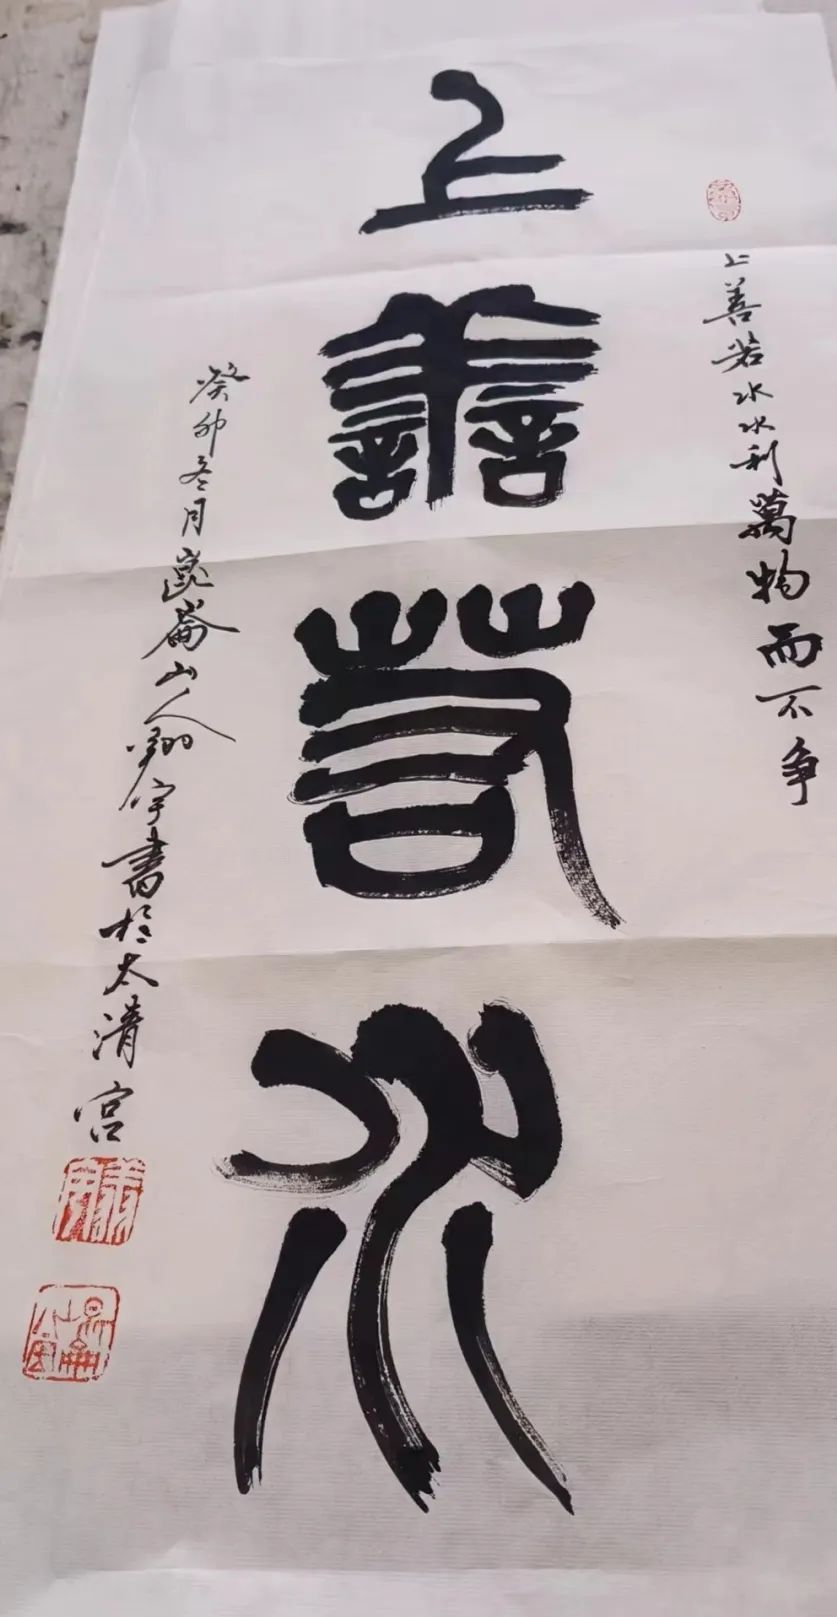 上善若水
上善若水水利萬物而不争
癸卯冬月崑崙山人翔宇書於太清宮